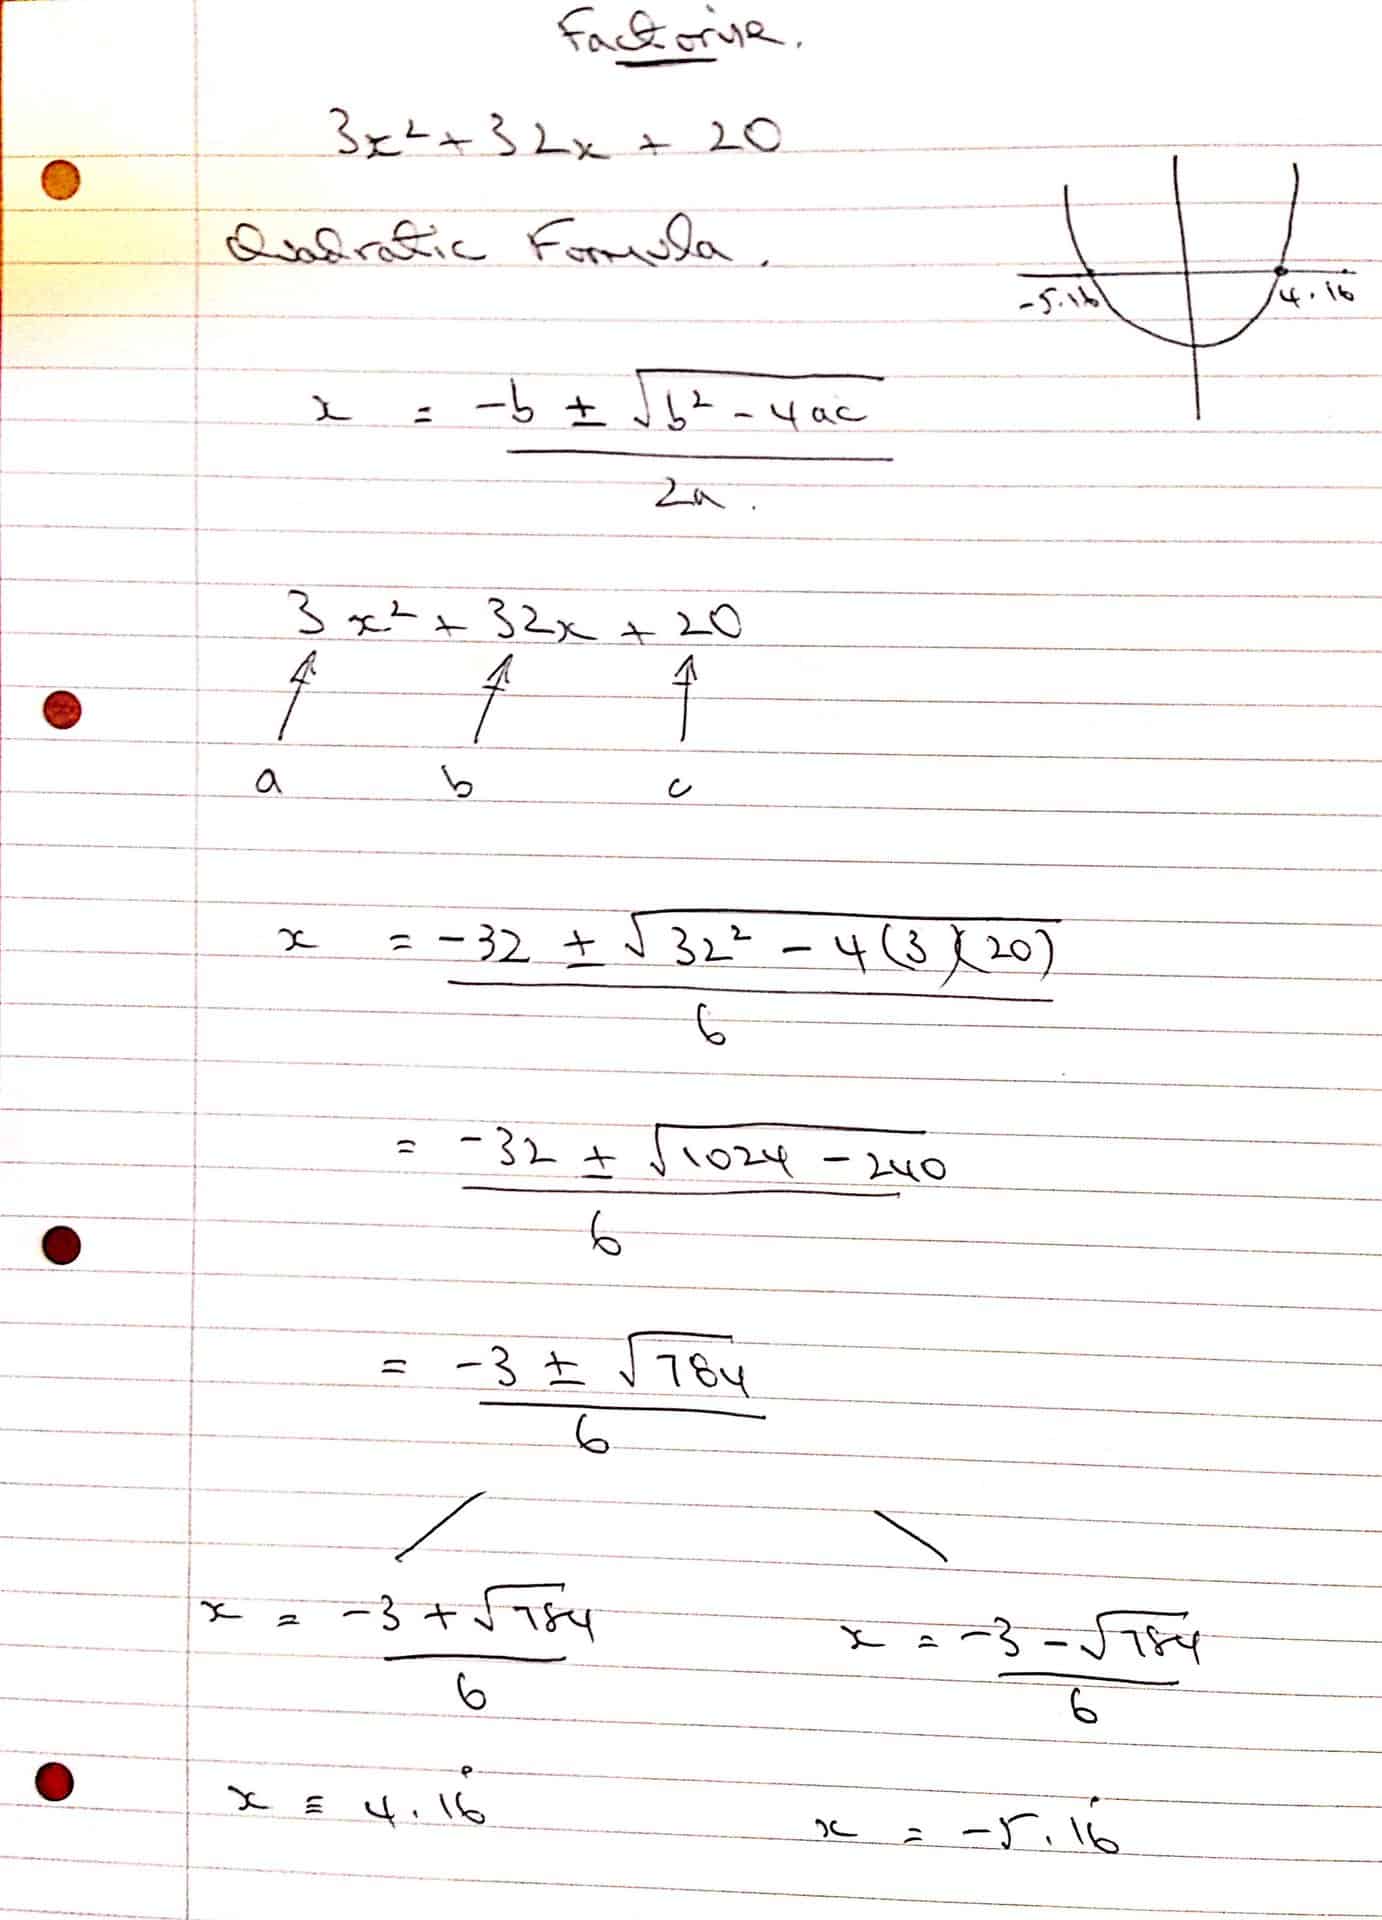 Factorise.
3x² + 32x + 20
Quadratic Formula.
-5.16 4.16
x = -b ± √b² - 4ac
2a.
3x² + 32x + 20
a b c
x = -32 ± √32² - 4(3)(20)
6
= -32 ± √1024 - 240
6
= -3 ± √784
6
x = -3 + √784
6
x = -3 - √784
6
x = 4.16̇
x = -5.16̇